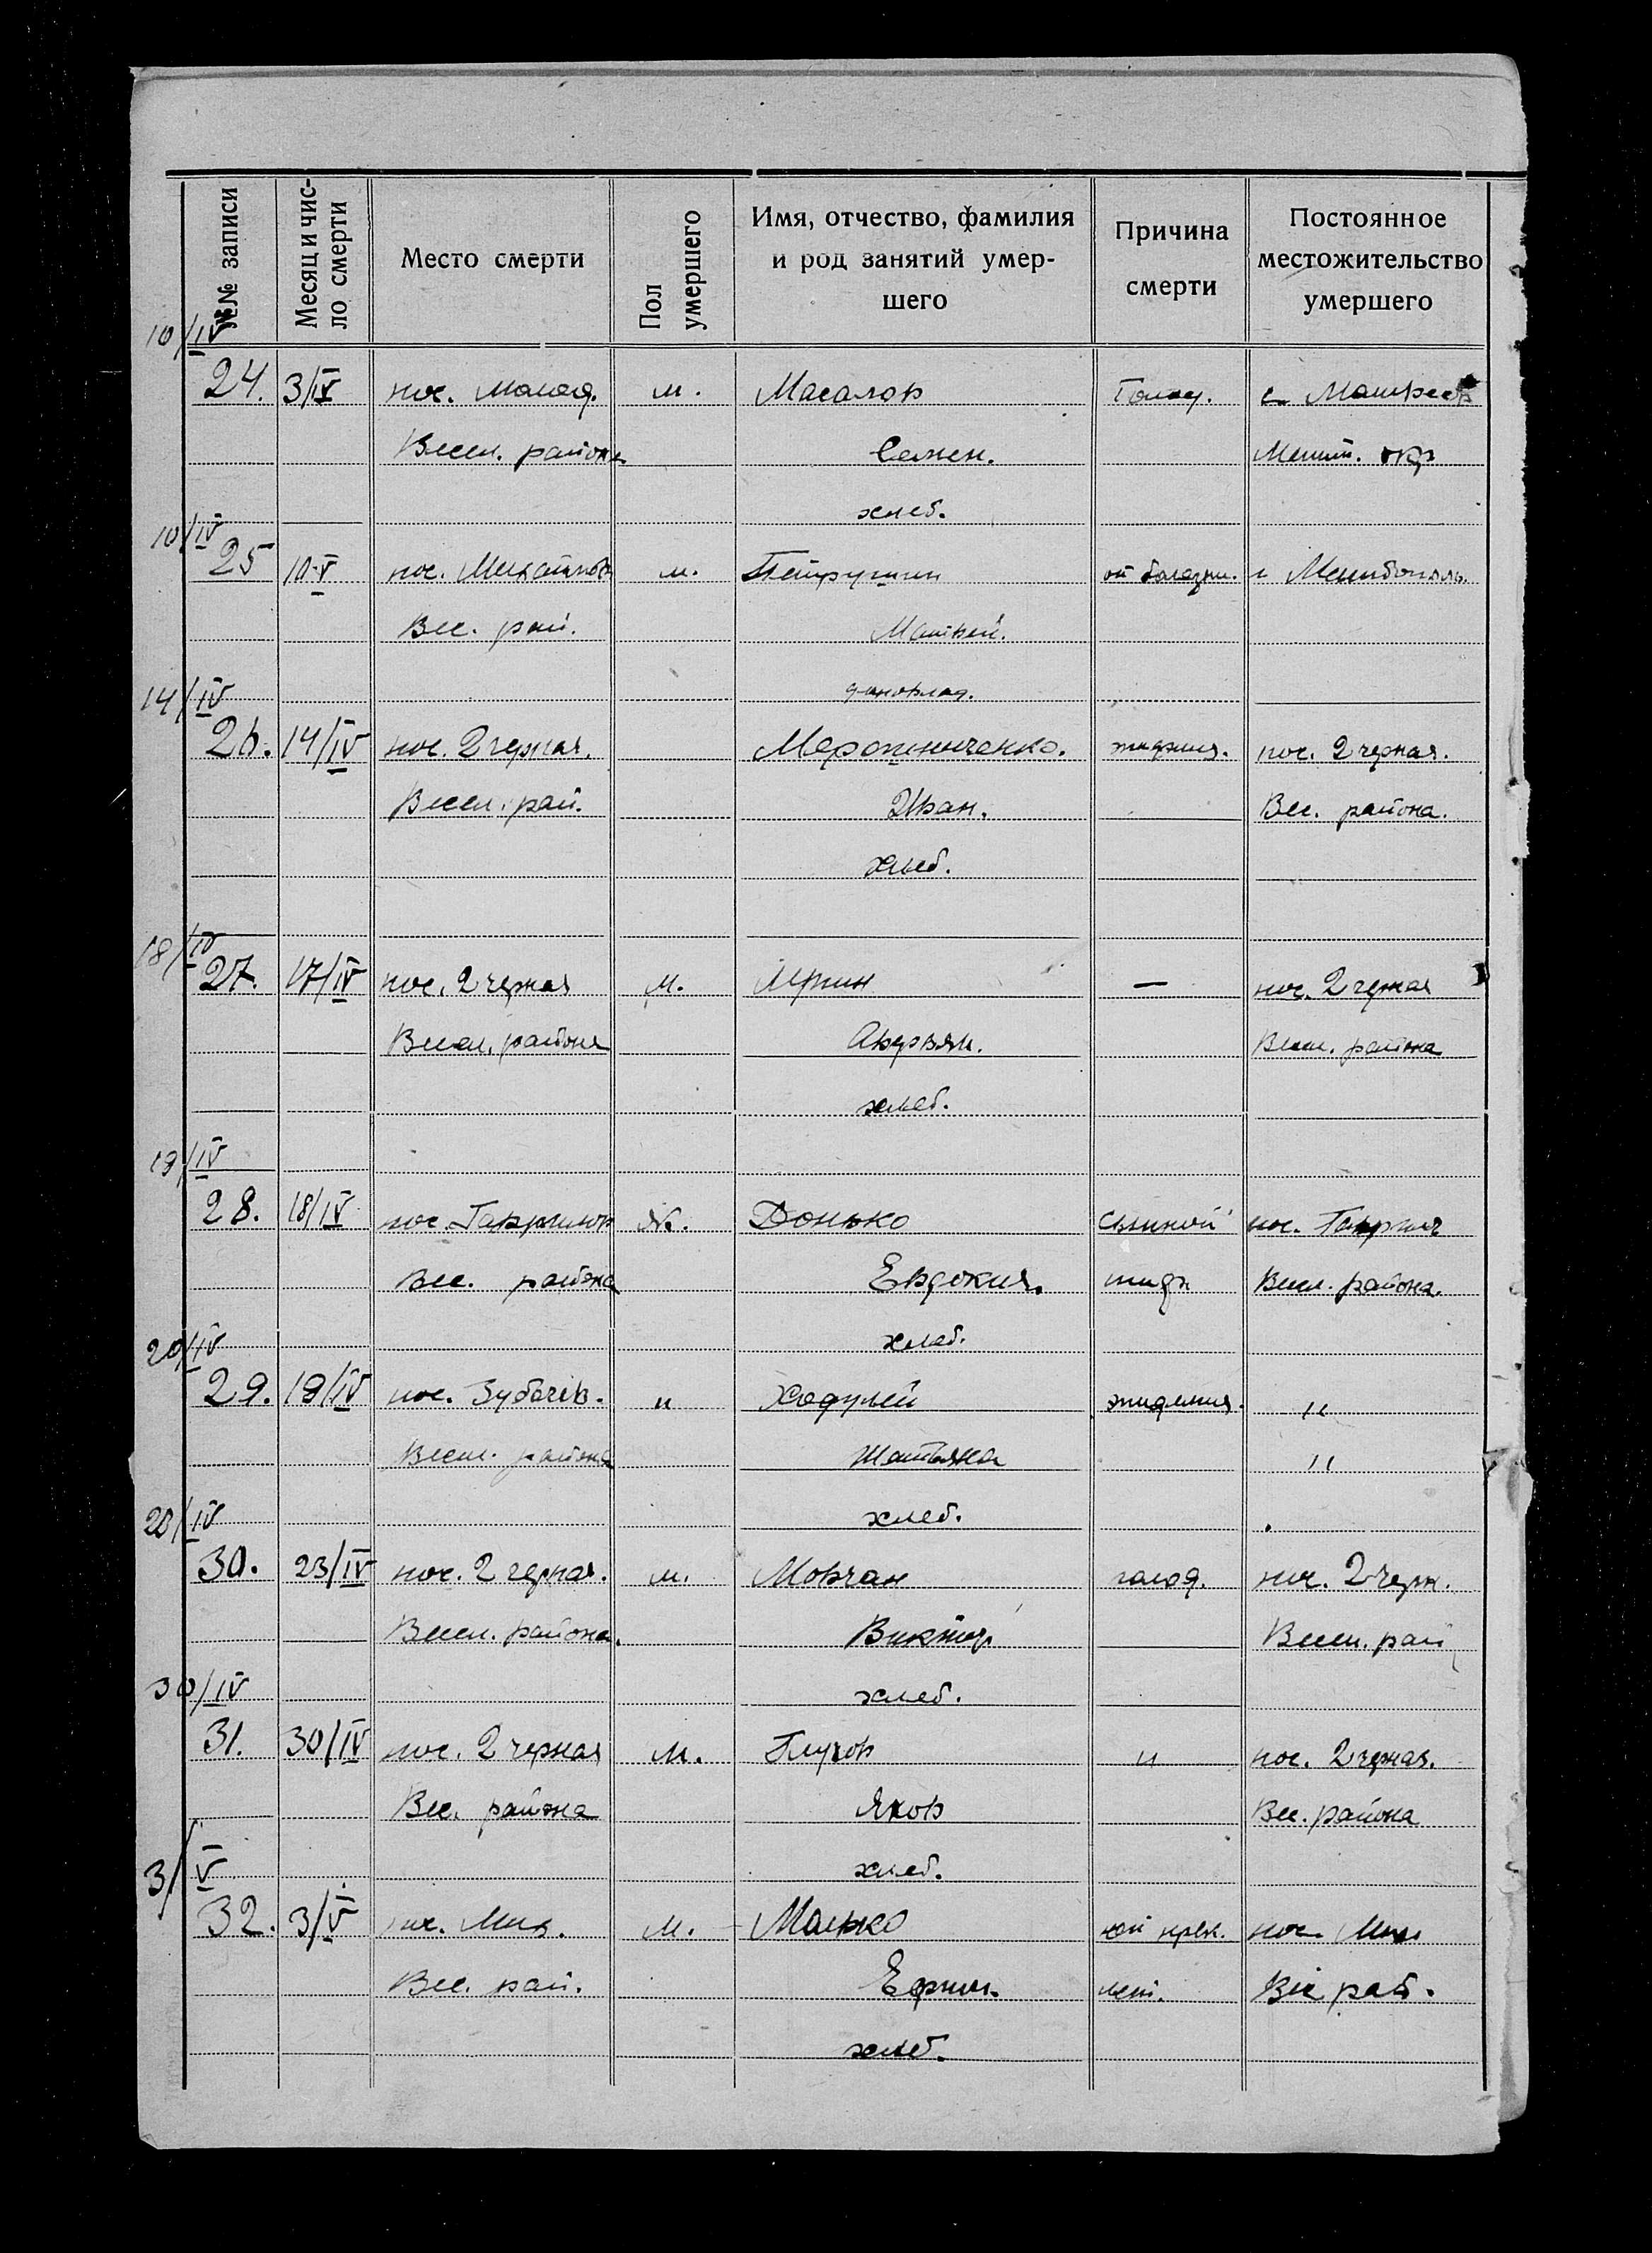 №№ записи
Месяц и чис-
ло смерти
Место смерти
Пол
умершего
Имя, отчество, фамилия
и род занятий умер-
шего
Причина
смерти
Постоянное
местожительство
умершего
10/IV
24. 3/IV пос. Молод. м. Масалов Голод. с.
Весел. района Семен.
хлеб.
10/IV
25 10-V пос. м. Петрушин от болезни. г.
Вес. рай. Матвей.
домовлад.
14/IV
26. 14/IV пос. 2 черная. пос. 2 черная.
Весел. рай. Иван. Вес. района.
хлеб.
18/IV
27. 17/IV пос. 2 черная м. — пос. 2 черная
Весел. района Аверьян. Весел. района
хлеб.
19/IV
28. 18/IV пос. Ж. Донько сыпной пос.
Вес. района Евдокия. тиф Весел. района.
хлеб.
20/IV
29. 19/IV пос. Зубочев. " эпидемия. "
Весел. района Татьяна "
хлеб.
28/IV
30. 23/IV пос. 2 черная. м. Мовчан голод. пос. 2 черн.
Весел. района. Виктор Весел. рай
хлеб.
30/IV
31. 30/IV пос. 2 черная м. Глухов " пос. 2 черная.
Вес. района Яков Вес. района
хлеб.
3/V
32. 3/V пос. Мих. м. пос.
Вес. рай. Ефим. лет. Вес рай.
хлеб.